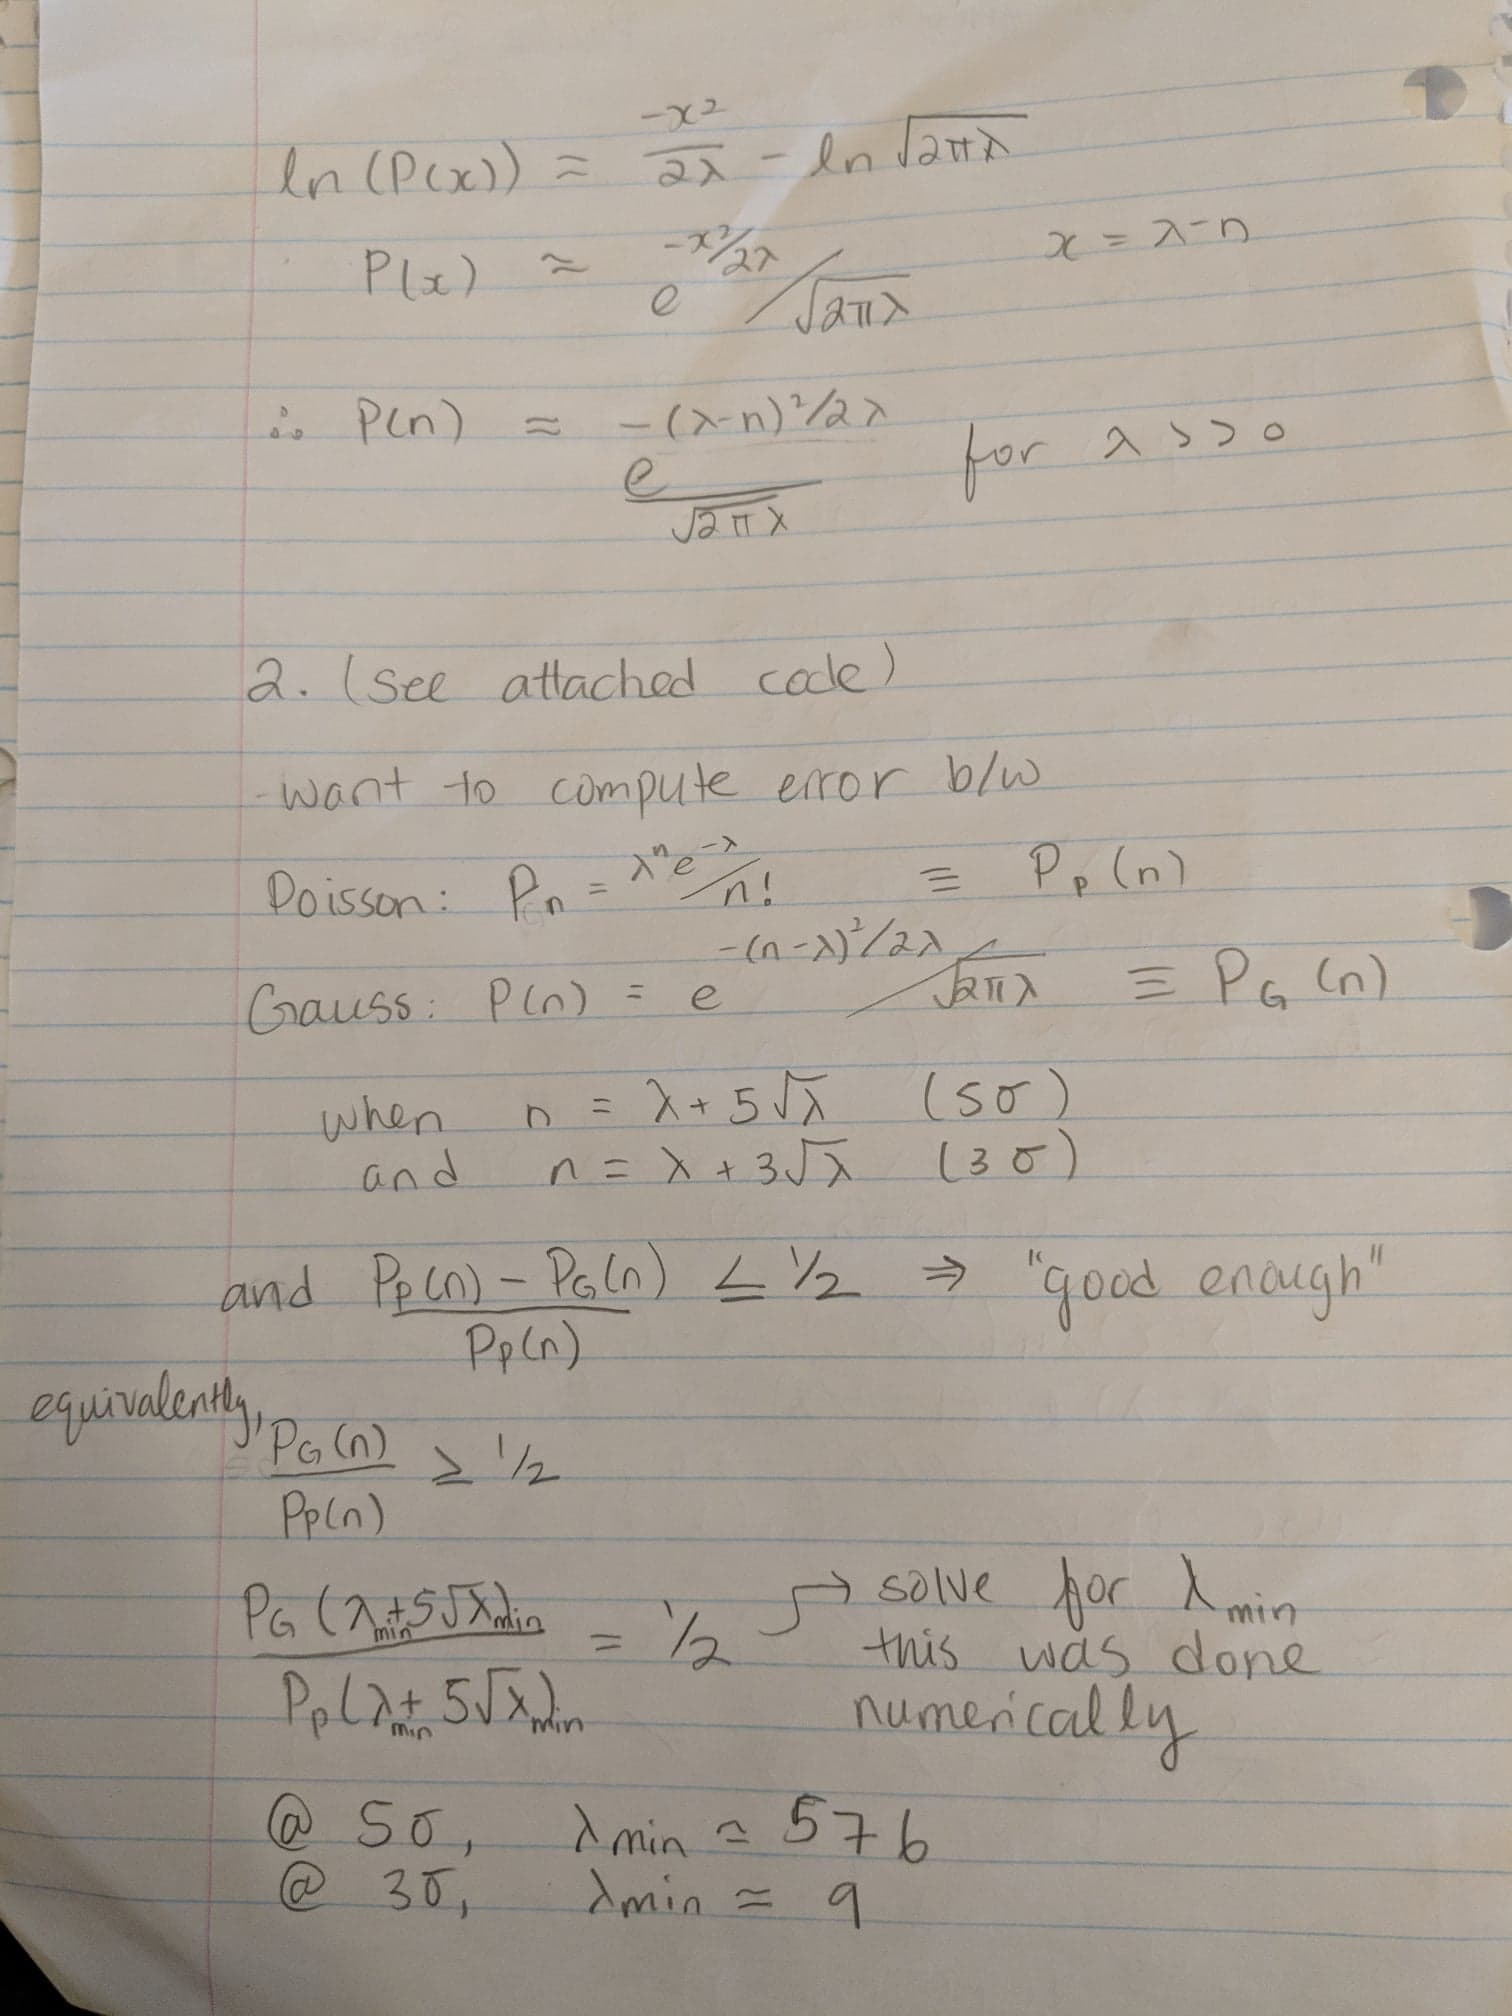 ln (P(x)) ≈ -x²/2λ - ln √2πλ
P(x) ≈ e^(-x²/2λ) / √2πλ x = λ-n
∴ P(n) ≈ e^(-(λ-n)²/2λ) / √2πλ for λ >> 0
2. (see attached code)
-want to compute error b/w
Poisson: Pn = λⁿe^(-λ)/n! ≡ Pp(n)
Gauss: P(n) = e^(-(n-λ)²/2λ) / √2πλ ≡ PG(n)
when n = λ + 5√λ (5σ)
and n = λ + 3√λ (3σ)
and (Pp(n) - PG(n)) / Pp(n) ≤ 1/2 ⇒ "good enough"
equivalently,
PG(n) / Pp(n) ≥ 1/2
PG(λmin + 5√λmin) / Pp(λmin + 5√λmin) = 1/2 → solve for λmin
this was done
numerically
@ 5σ, λmin ≈ 576
@ 3σ, λmin ≈ 9